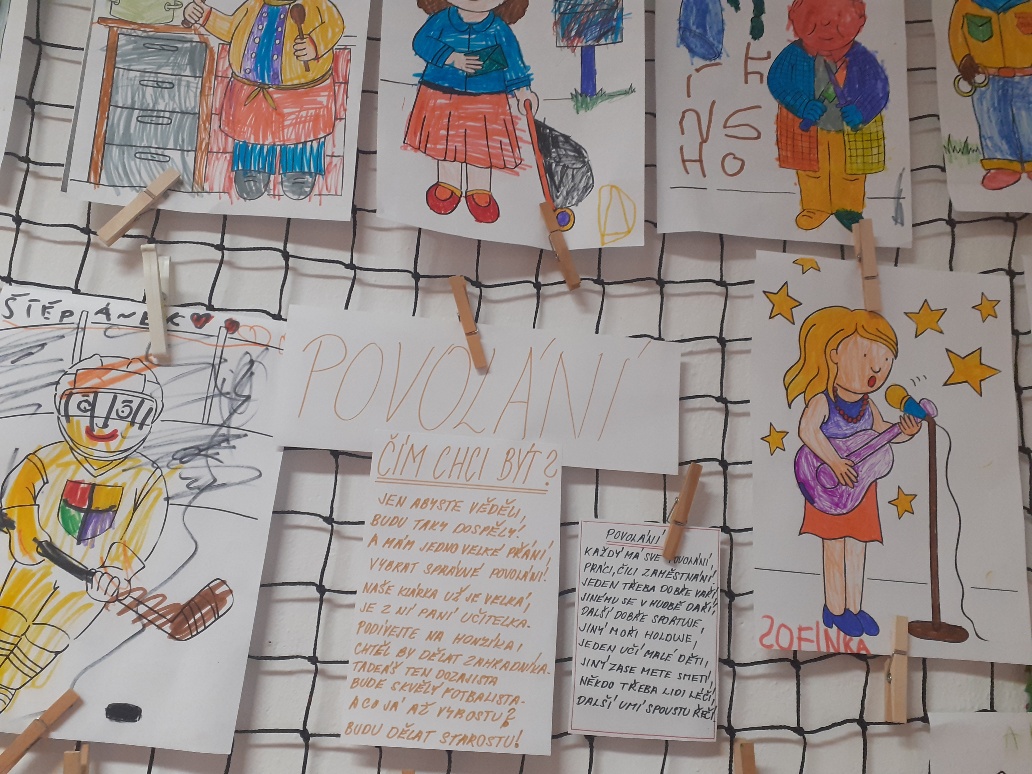 ŠTĚPÁNEK
POVOLÁNÍ
ČÍM CHCI BÝT?
JEN ABYSTE VĚDĚLI,
BUDU TAKY DOSPĚLÝ.
A MÁM JEDNO VELKÉ PŘÁNÍ,
VYBRAT SPRÁVNÉ POVOLÁNÍ!
NAŠE KLÁRKA UŽ JE VELKÁ,
JE Z NÍ PANÍ UČITELKA.
PODÍVEJTE NA HONZÍKA,
CHTĚL BY DĚLAT ZAHRADNÍKA.
TADEÁŠ TEN DOZAJISTA
BUDE SKVĚLÝ FOTBALISTA.
A CO JÁ AŽ VYROSTU?
BUDU DĚLAT STAROSTU!
POVOLÁNÍ
KAŽDÝ MÁ SVÉ POVOLÁNÍ,
PRÁCI, ČILI ZAMĚSTNÁNÍ.
JEDEN TŘEBA DOBŘE VAŘÍ,
JINÉMU SE V HUDBĚ DAŘÍ,
DALŠÍ DOBŘE SPORTUJE,
JINÝ MOŘI HOLDUJE,
JEDEN UČÍ MALÉ DĚTI,
JINÝ ZASE METE SMETÍ,
NĚKDO TŘEBA LIDI LÉČÍ,
DALŠÍ UMÍ SPOUSTU ŘEČÍ
ZOFINKA